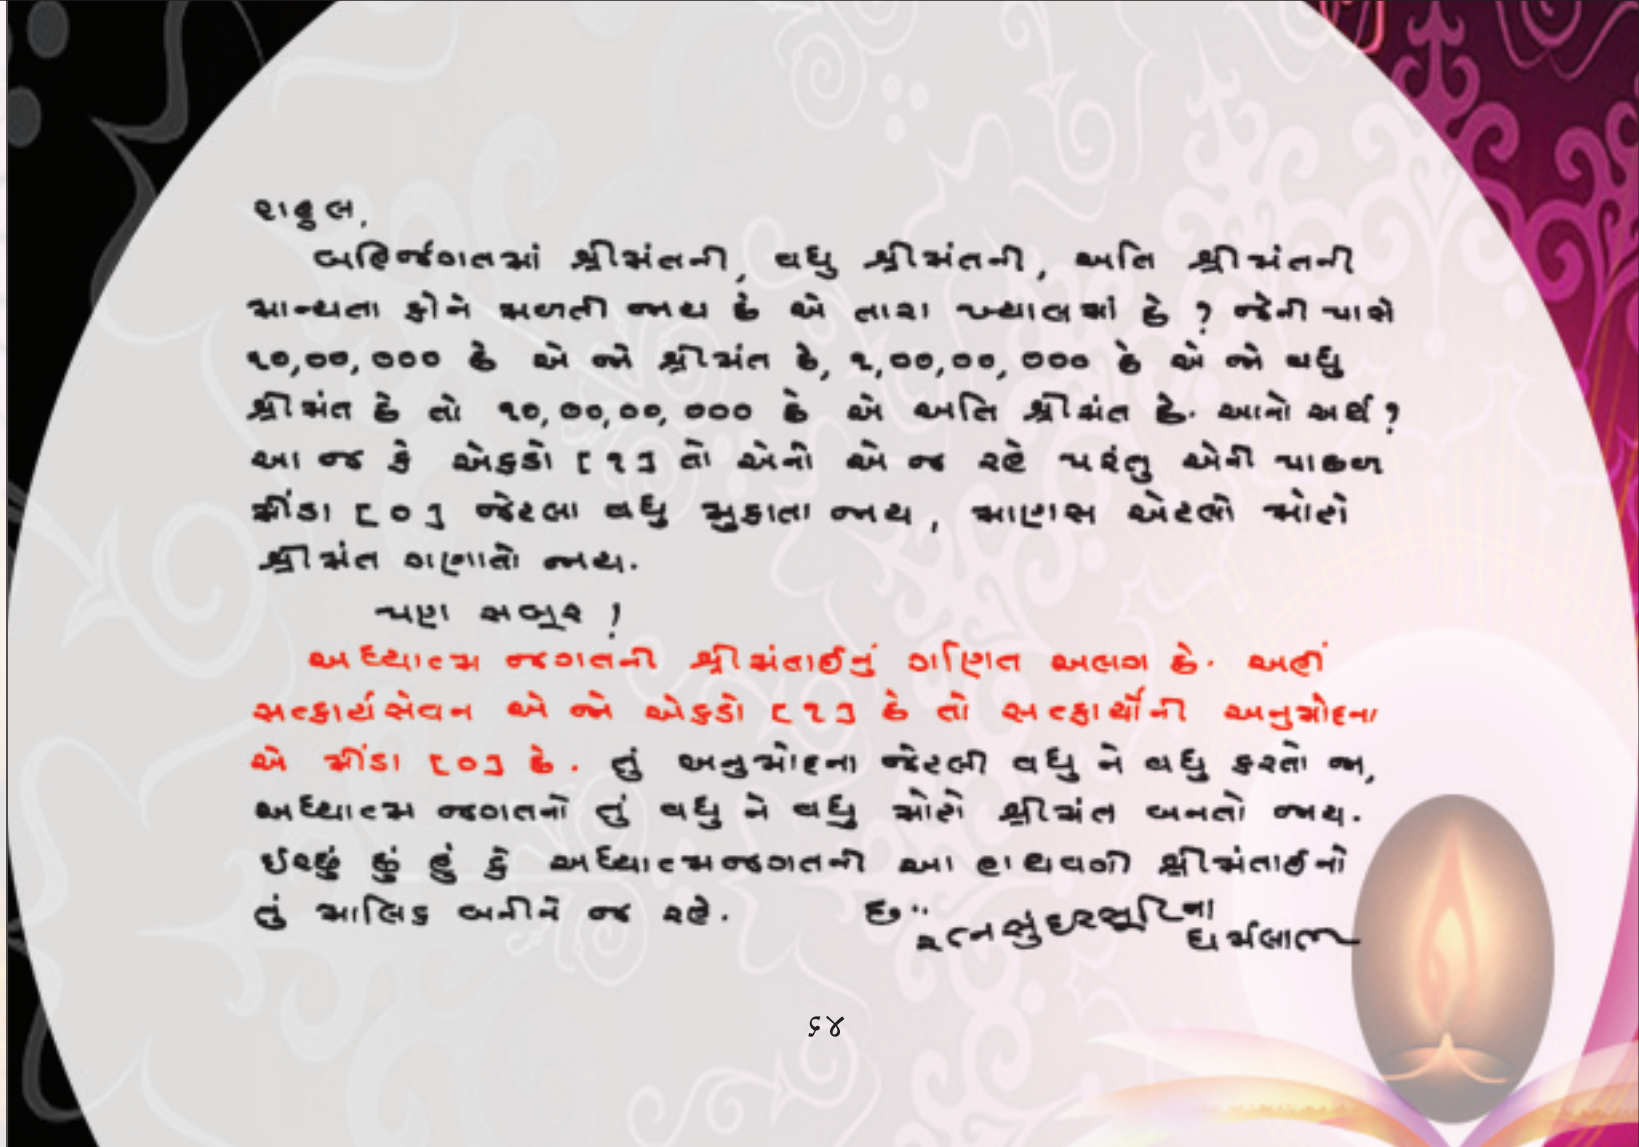 રાહુલ,
બહિર્જગતમાં શ્રીમંતની, વધુ શ્રીમંતની, અતિ શ્રીમંતની
માન્યતા કોને મળતી જાય છે એ તારા ખ્યાલમાં છે ? જેની પાસે
૧૦,૦૦,૦૦૦ છે એ જો શ્રીમંત છે, ૧,૦૦,૦૦,૦૦૦ છે એ જો વધુ
શ્રીમંત છે તો ૧૦,૦૦,૦૦,૦૦૦ છે એ અતિ શ્રીમંત છે. આનો અર્થ ?
આ જ કે એકડો [૧] તો એનો એ જ રહે પરંતુ એની પાછળ
મીંડા [૦] જેટલા વધુ મુકાતા જાય, માણસ એટલો મોટો
શ્રીમંત ગણાતો જાય.
પણ સબૂર !
અધ્યાત્મ જગતની શ્રીમંતાઈનું ગણિત અલગ છે. અહીં
સત્કાર્યસેવન એ જો એકડો [૧] છે તો સત્કાર્યોની અનુમોદના
એ મીંડા [૦] છે. તું અનુમોદના જેટલી વધુ ને વધુ કરતો જા,
અધ્યાત્મ જગતનો તું વધુ ને વધુ મોટો શ્રીમંત બનતો જાય.
ઈચ્છું છું હું કે અધ્યાત્મજગતની આ હાથવગી શ્રીમંતાઈનો
તું માલિક બનીને જ રહે.
રત્નસુંદરસૂરિના
ધર્મલાભ
૬૪